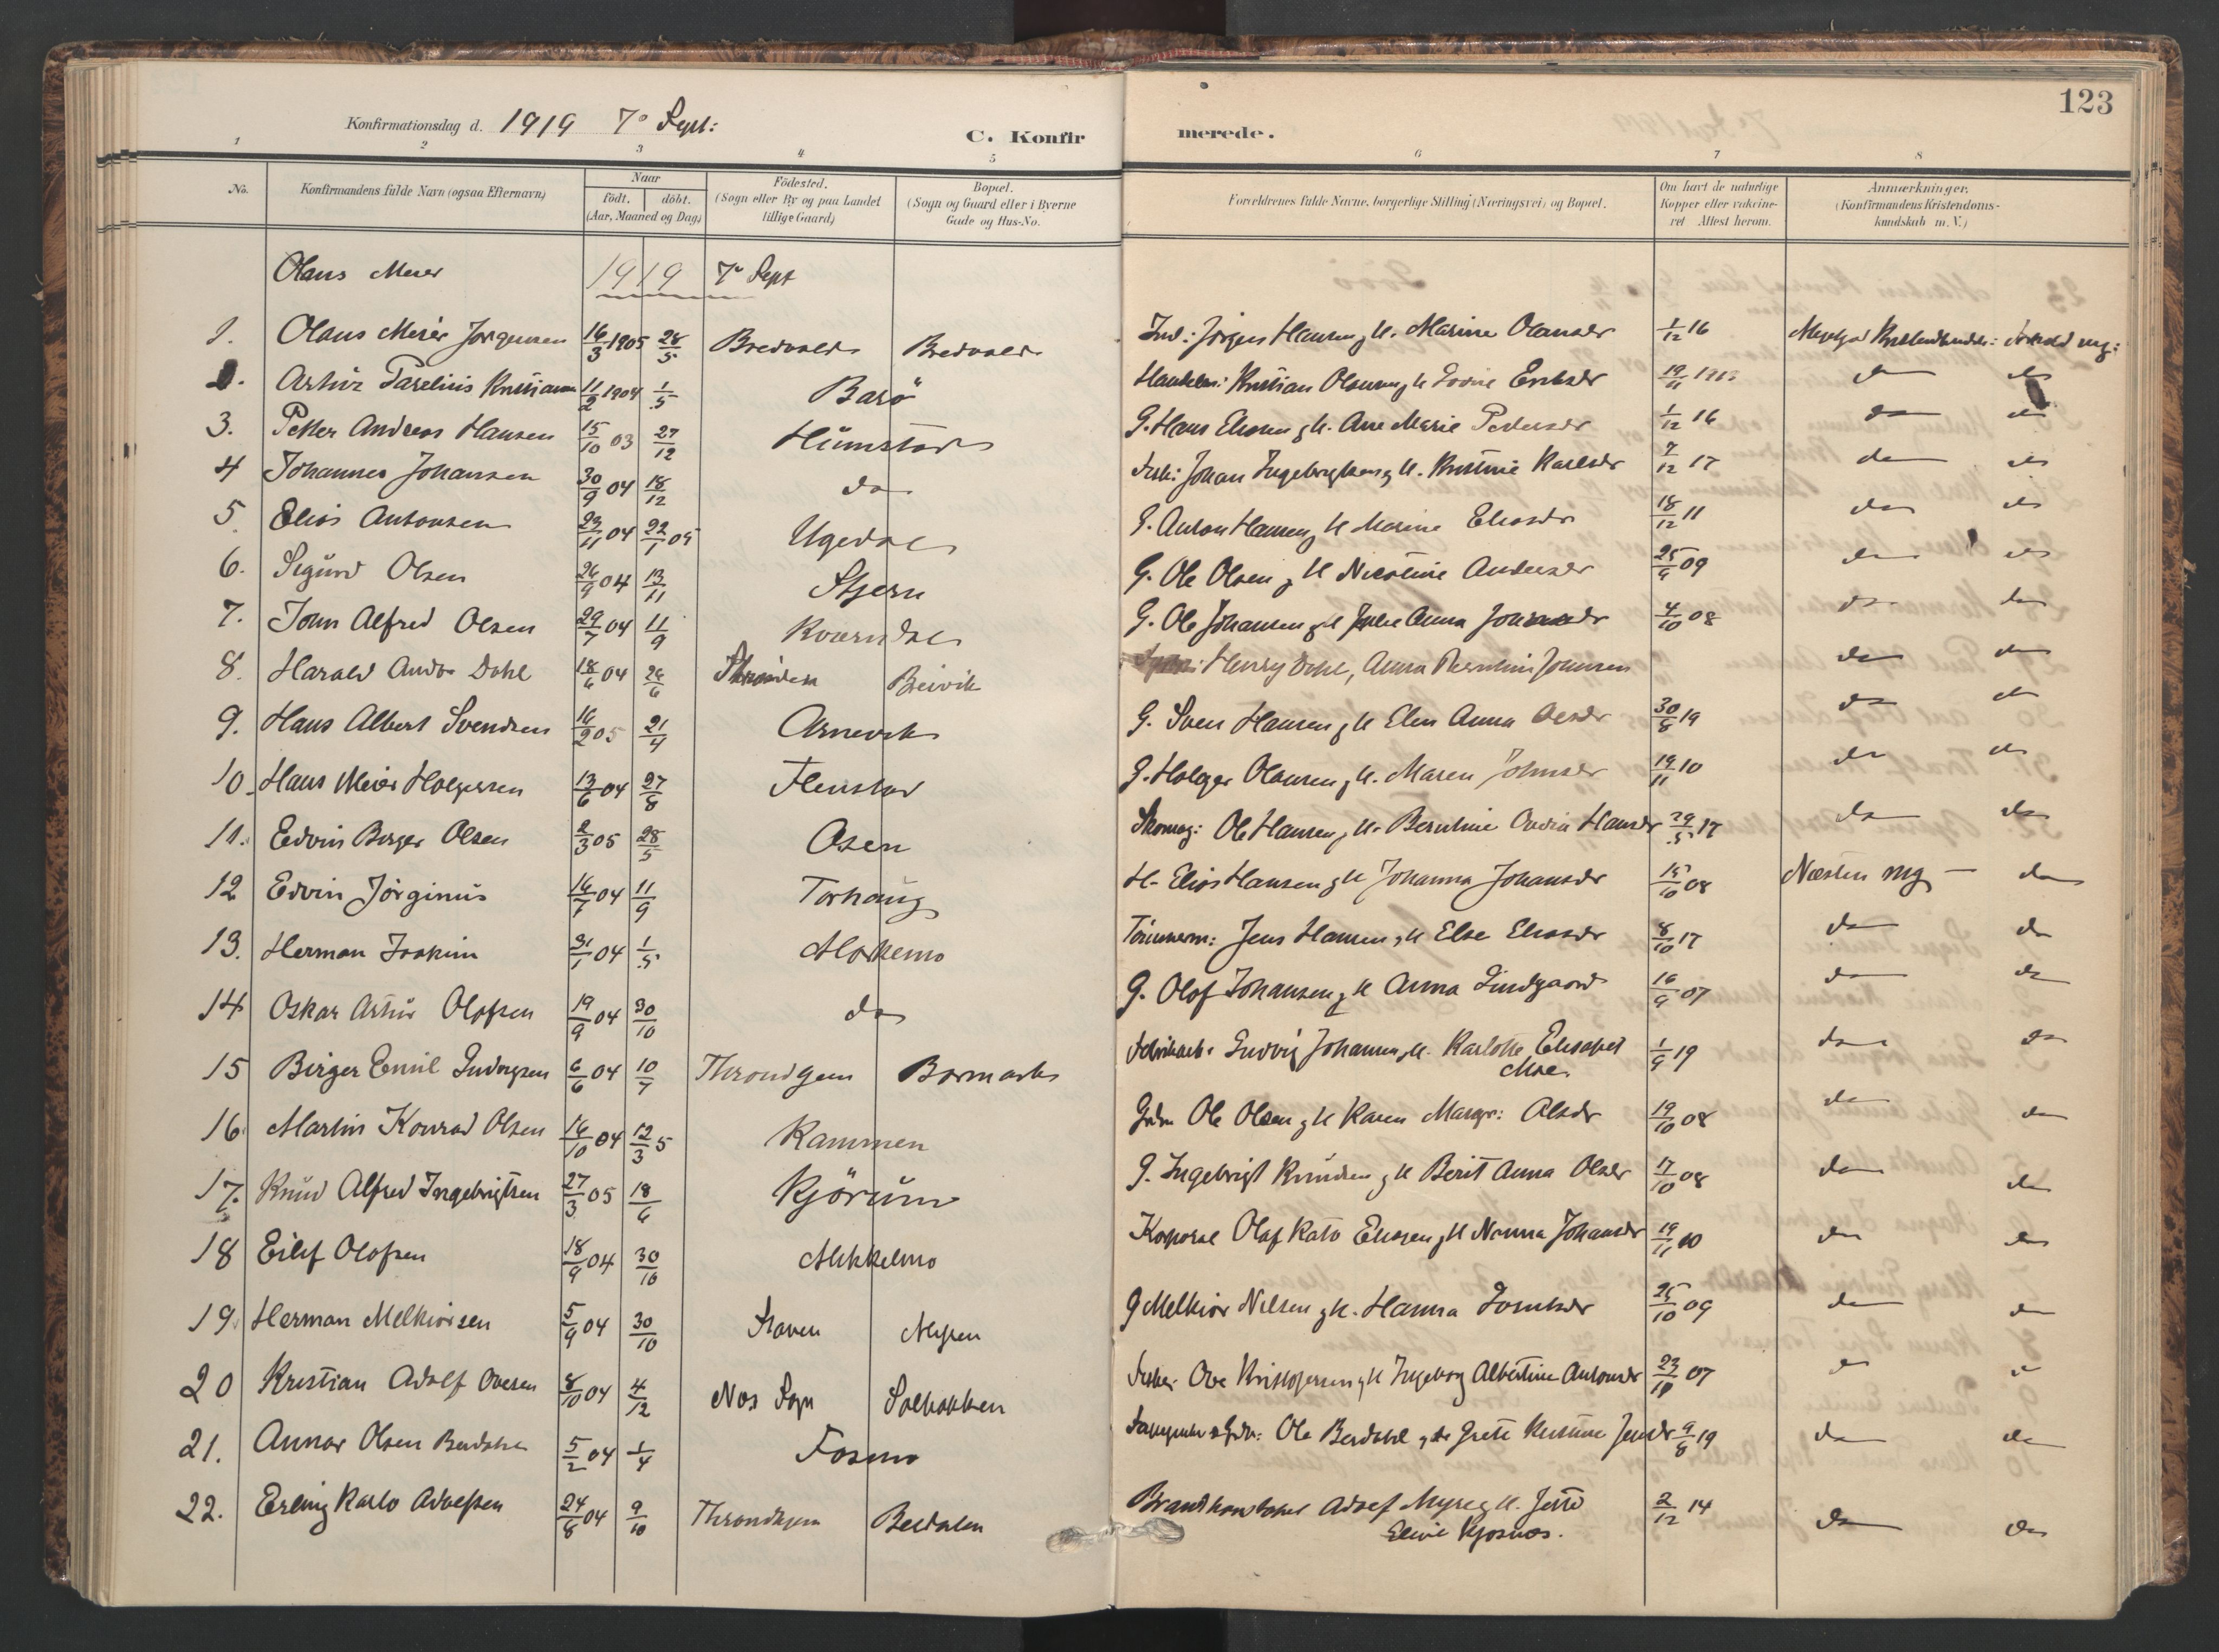 123
Konfirmationsdag d. 1919 7de Sept:
C. Konfirmerede.
1 2 3 4 5 6 7 8
No. Konfirmandens fulde Navn (ogsaa Efternavn) Naar født. døbt. (Aar, Maaned og Dag) Födested. (Sogn eller By og paa Landet tillige Gaard) Bopæl. (Sogn og Gaard eller i Byerne Gade og Hus-No. Forældrenes fulde Navne, borgerlige Stilling (Næringsvei) og Bopæl. Om havt de naturlige Kopper eller vakcineret Attest herom. Anmærkninger. (Konfirmandens Kristendomskundskab m.V.)
Olaus Meier 1919 7de Sept
1. Olaus Meier Jørgensen 16/3 1905 28/5 Bredvold Bredvold Ind: Jörgen Hansen g H. Marine Olausdr 1/12 16
2. Arthur Parelius Kristiansen 11/2 1904 1/5 Barö Kristian Olausen g H Lovise Eriksdr 19/11 do do
3. Petter Andreas Hansen 15/10 03 27/12 Humstad G. Hans Eliasen g H. Ane Marie Pedersdr 1/12 16 do do
4 Johannes Johansen 30/9 04 18/12 do Fisk: Johan Ingebrigtsen g H. Kristine Karlsdr 7/12 17 do do
5. Elias Antonsen 23/11 04 22/1 05 Ugedal G. Anton Hansen g H Marine Eliasdr 18/12 11 do do
6. Sigurd Olsen 26/9 04 13/11 Stjern G. Ole Olsen g H Nicoline Andersdr 25/9 09 do do
7. John Alfred Olsen 29/7 04 11/9 Kværndal G. Ole Johansen g H Julie Anna 4/10 08 do do
8. Harald Andr. Dahl 18/6 04 26/6 Beivik Henry Dahl, Anna Johnsen do do
9. Hans Albert Svendsen 16/2 05 21/4 Arnevik G. Sven Hansen g H Elen Anna Olsdr 30/8 19 do do
10. Hans Meier Holgersen 13/6 04 27/8 Flenstad G. Holger Olausen g H. Maren Johnsdr 19/11 10 do do
11. Edvin Birger Olsen 2/3 05 28/5 Osen Skomag: Ole Hansen g H. Berntine Ovdia Hansdr 29/5 17 do do
12 Edvin Jörginus 16/7 04 11/9 Torhaug H. Elias Hansen g H Johanna Johansdr 15/10 08 Næsten mg do
13. Herman Joakim 31/1 04 1/5 Mokkemo Tömmerm: Jens Hansen g H Else Eliasdr 8/10 17 do do
14 Oskar Arthur Olafsen 19/9 04 30/10 do G. Olaf Johansen g H Anna Lindgaard 16/9 07 do do
15 Birger Emil Ludvigsen 6/6 04 10/7 Throndhjem Bormark Fabrikarb. Ludvig Johansen g H. Karlotte Elisabet
Moe 1/9 19 do do
16 Martin Konrad Olsen 16/10 04 12/3 5 Rammen Gdm Ole Olsen g H Karen Margr: Olsdr 19/10 08 do do
17. Knud Alfred Ingebrigtsen 27/3 05 18/6 Kjörum G. Ingebrigt Knudsen g H Berit Anna Olsdr 17/10 08 do do
18 Eilif Olafsen 18/9 04 30/10 Mikkelmo Korporal Olaf Kato Eliasen g H Nanna Johansdr 19/11 10 do do
19. Herman Melkiorsen 5/9 04 30/10 Myren G Melkior Nilsen g H. Hanna 25/10 09 do do
20 Kristian Adolf Ovesen 8/10 04 4/12 Nes Sogn Solbakken Fisker Ove Kristofersen g H Ingeborg Albertine Antonsdr 23/10 07 do do
21. Annar Olsen Berdahl 5/2 04 1/4 Fosmo Ole Berdahl g H Grete Kristine Jensdr 9/8 19 do do
22. Erling Karlo Adolfsen 24/8 04 9/10 Throndhjem Berdalen Brandkonstabel Adolf Myre g H. Jette
Elvine Kjosnes. 2/12 14 do do